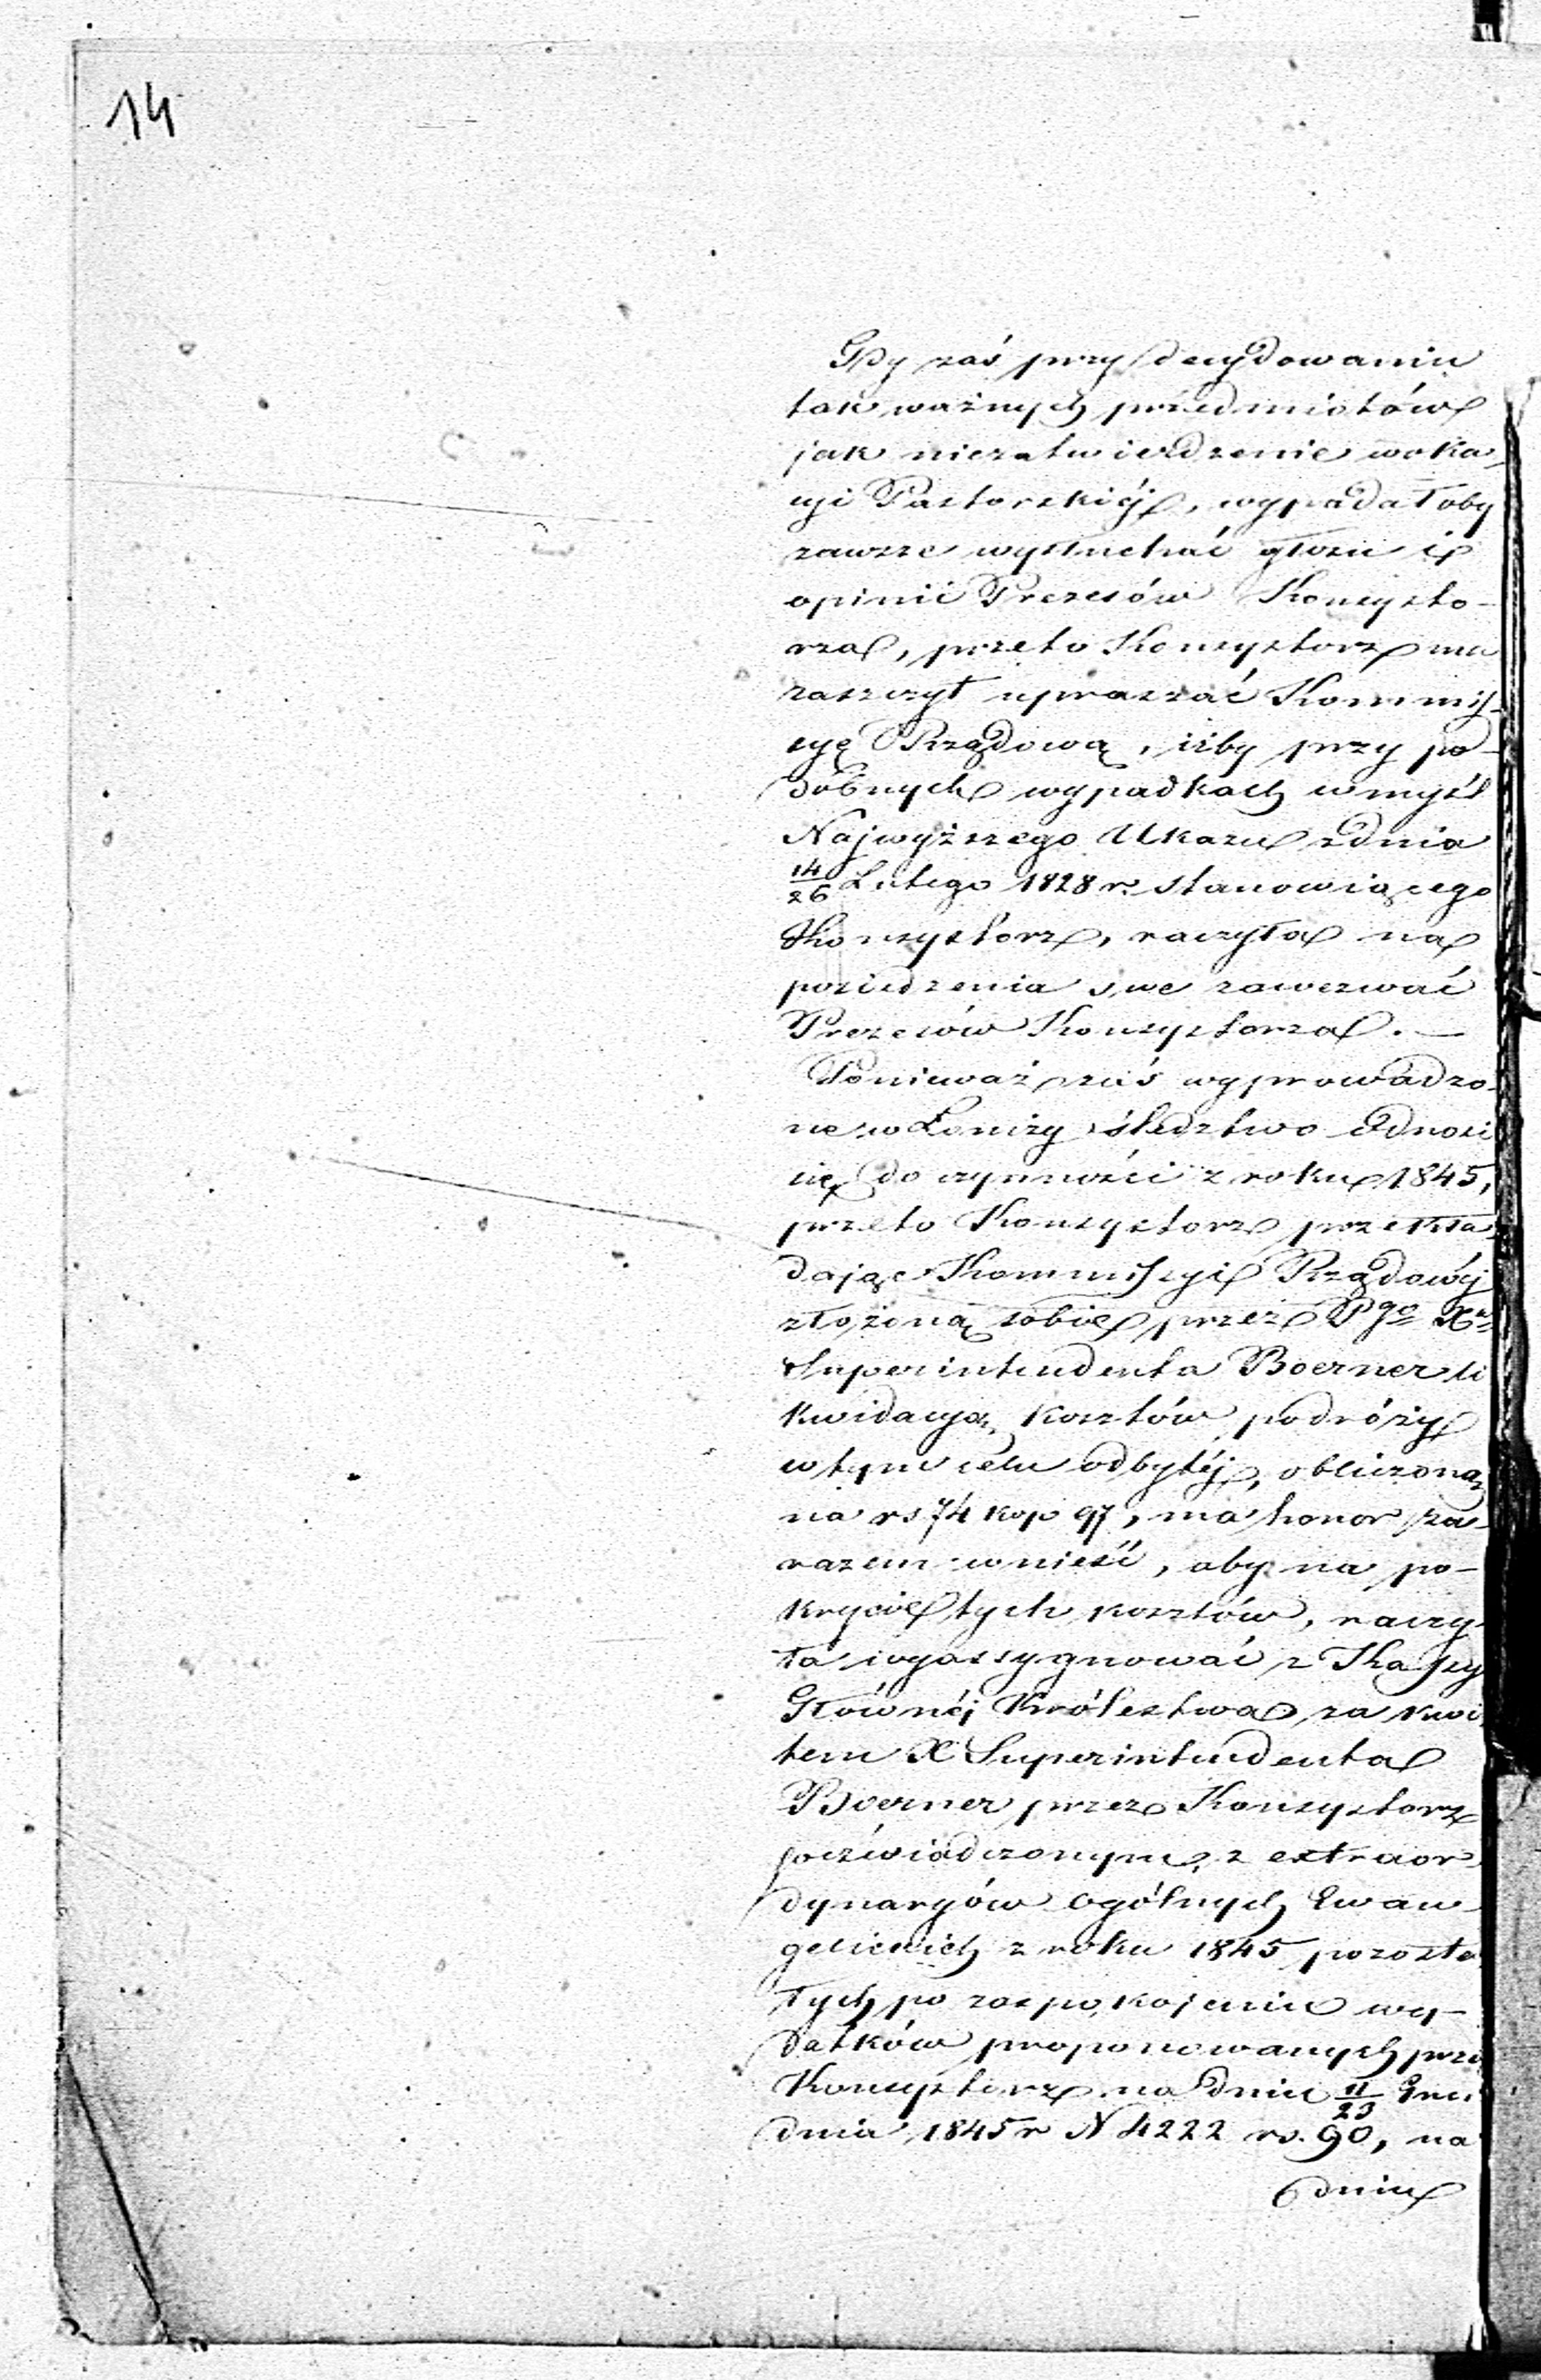 14
Gdy zaś przy decydowaniu
tak ważnych przedmiotów
jak niezatwierdzenie woka-
cyi Pastorskiéj, wypadałoby
zawsze wysłuchać głosu i
opinii Prezesów Konsysto-
rza, przeto Konsystorz ma
zaszczyt upraszać Kommis-
syę Rządową, iżby przy po-
dobnych wypadkach w myśl
Najwyższego Ukazu z dnia
14/26 Lutego 1828 r. stanowiącego
Konsystorz, raczyła na
posiedzenia swe zawezwać
Prezesów Konsystorza. —
Ponieważ zaś wyprowadzo-
ne w Łomży śledztwo odnosi
się do czynności z roku 1845,
przeto Konsystorz przekła-
dając Kommissyi Rządowéj
złożoną sobie przez Pgo Xa
Superintendenta Boerner li
kwidacyą kosztów podróży
w tym celu odbytéj, obliczoną
na rs 74 kop 97, ma honor za-
razem wnieść, aby na po-
krycie tych kosztów, raczy-
ła wyassygnować z Kassy
Głównéj Królestwa, za kwi
tem X Superintendenta
Boerner przez Konsystorz
poświadczonym, z extraor
dynaryów ogólnych Ewan-
gelickich z roku 1845 pozosta
łych po zaspokojeniu wy-
datków proponowanych prze
Konsystorz na dniu 11/23 Gru
dnia 1845 r N 4222 rs. 90, na
dniu